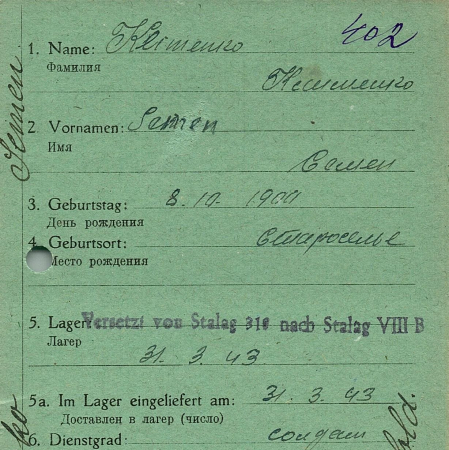 402
1. Name: Klimenko
Фамилия
Клименко
2. Vornamen: Semen
Имя
Семен
3. Geburtstag: 8.10.1900
День рождения
4. Geburtsort: Староселье
Место рождения
5. Lager: Versetzt von Stalag 318 nach Stalag VIII B
Лагер
31. 3. 43
5a. Im Lager eingeliefert am: 31. 3. 43
Доставлен в лагер (число)
6. Dienstgrad: солдат
Semen
ko